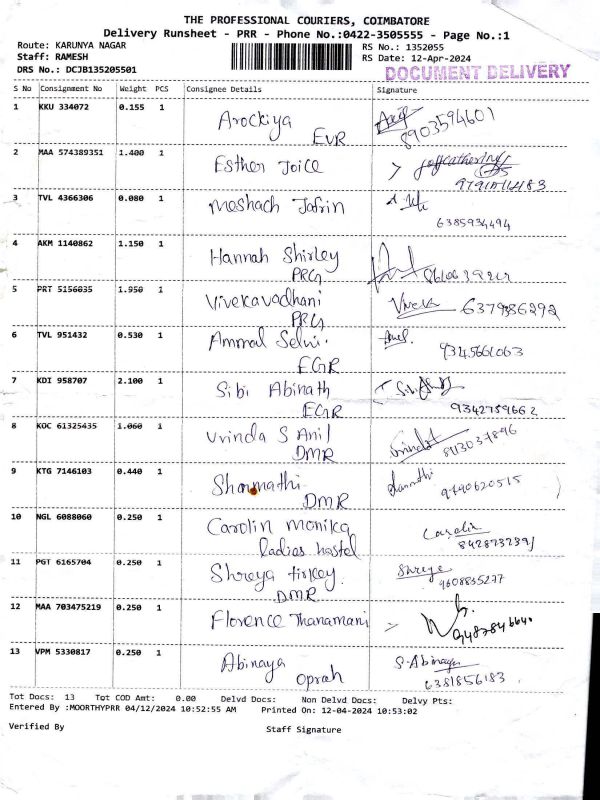 THE PROFESSIONAL COURIERS, COIMBATORE
Delivery Runsheet - PRR - Phone No.:0422-3505555 - Page No.:1
Route: KARUNYA NAGAR RS No.: 1352055
Staff: RAMESH RS Date: 12-Apr-2024
DRS No.: DCJB135205501 DOCUMENT DELIVERY
S No Consignment No Weight PCS Consignee Details Signature
1 KKU 334072 0.155 1 Arockiya
EVR 8903594601
2 MAA 574389351 1.400 1 Esther Joice
3 TVL 4366306 0.080 1 Meshach Jafrin
6385934494
4 AKM 1140862 1.150 1 Hannah Shirley
PRG
5 PRT 5156035 1.950 1 Vivekavadhani Vivek 6379386292
PRG
6 TVL 951432 0.530 1 Ammal Selvi.
EGR 9345661063
7 KDI 958707 2.100 1 Sibi Abinath
EGR 9342759662
8 KOC 61325435 1.060 1 Vrinda S Anil
DMR
9 KTG 7146103 0.440 1 Shanmathi
DMR 9790620515
10 NGL 6088060 0.250 1 Carolin Monika Carolin
ladies hostel 842873239)
11 PGT 6165704 0.250 1 Shreya tirkey. Shreya
DMR 9608835277
12 MAA 703475219 0.250 1 Florence Thanamani
13 VPM 5330817 0.250 1 Abinaya S. Abinaya
Oprah 6381856183
Tot Docs: 13 Tot COD Amt: 0.00 Delvd Docs: Non Delvd Docs: Delvy Pts:
Entered By :MOORTHYPRR 04/12/2024 10:52:55 AM Printed On: 12-04-2024 10:53:02
Verified By Staff Signature